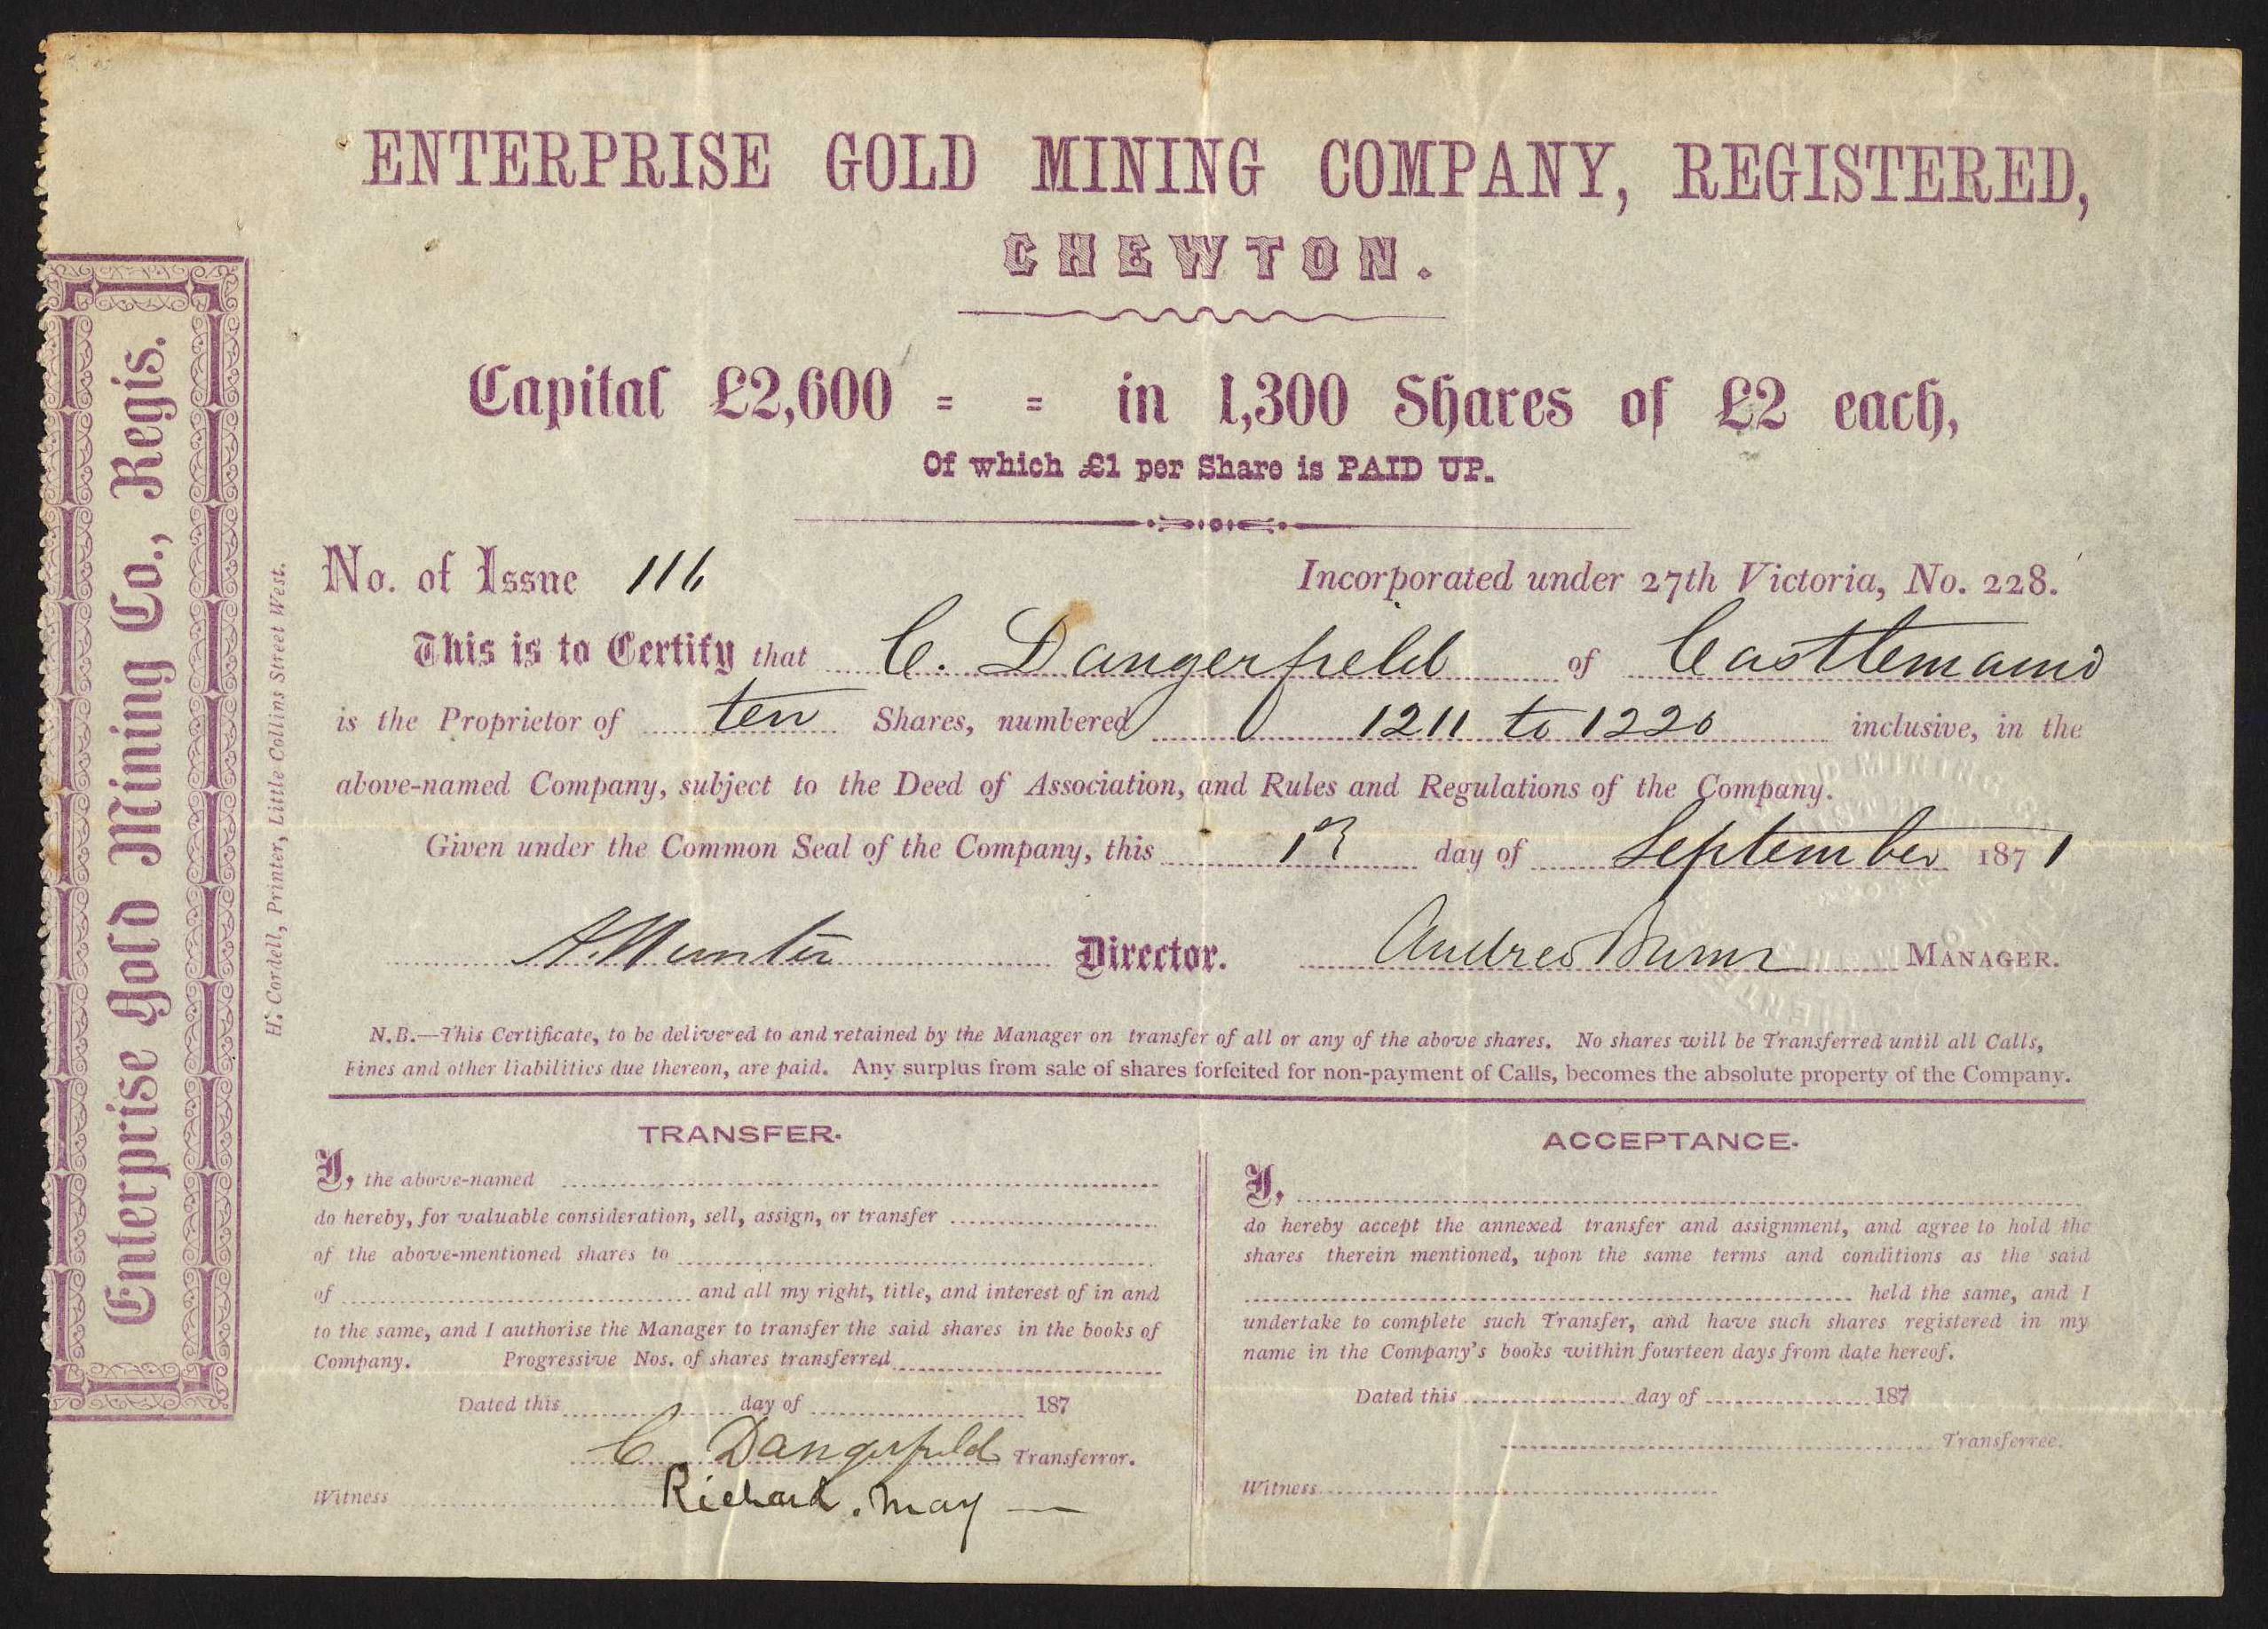 ENTERPRISE GOLD MINING COMPANY, REGISTERED,
CHEWTON.
Capital £2,600 = = in 1,300 Shares of £2 each,
Of which £1 per Share is PAID UP.
No. of Issue 116 Incorporated under 27th Victoria, No. 228.
This is to Certify that C. Dangerfield of Castlemaine
is the Proprietor of ten Shares, numbered 1211 to 1220 inclusive, in the
above-named Company, subject to the Deed of Association, and Rules and Regulations of the Company.
Given under the Common Seal of the Company, this 1st day of September 1871
Director. Andrew MANAGER.
N.B.—This Certificate, to be delivered to and retained by the Manager on transfer of all or any of the above shares. No shares will be Transferred until all Calls,
Fines and other liabilities due thereon, are paid. Any surplus from sale of shares forfeited for non-payment of Calls, becomes the absolute property of the Company.
TRANSFER.
I, the above-named
do hereby, for valuable consideration, sell, assign, or transfer
of the above-mentioned shares to
of and all my right, title, and interest of in and
to the same, and I authorise the Manager to transfer the said shares in the books of
Company. Progressive Nos. of shares transferred
Dated this day of 187
C Dangerfield Transferror.
Witness Richard. May —
ACCEPTANCE.
I,
do hereby accept the annexed transfer and assignment, and agree to hold the
shares therein mentioned, upon the same terms and conditions as the said
held the same, and I
undertake to complete such Transfer, and have such shares registered in my
name in the Company's books within fourteen days from date hereof.
Dated this day of 187
Transferree.
Witness
Enterprise Gold Mining Co., Regis.
H. Cordell, Printer, Little Collins Street West.